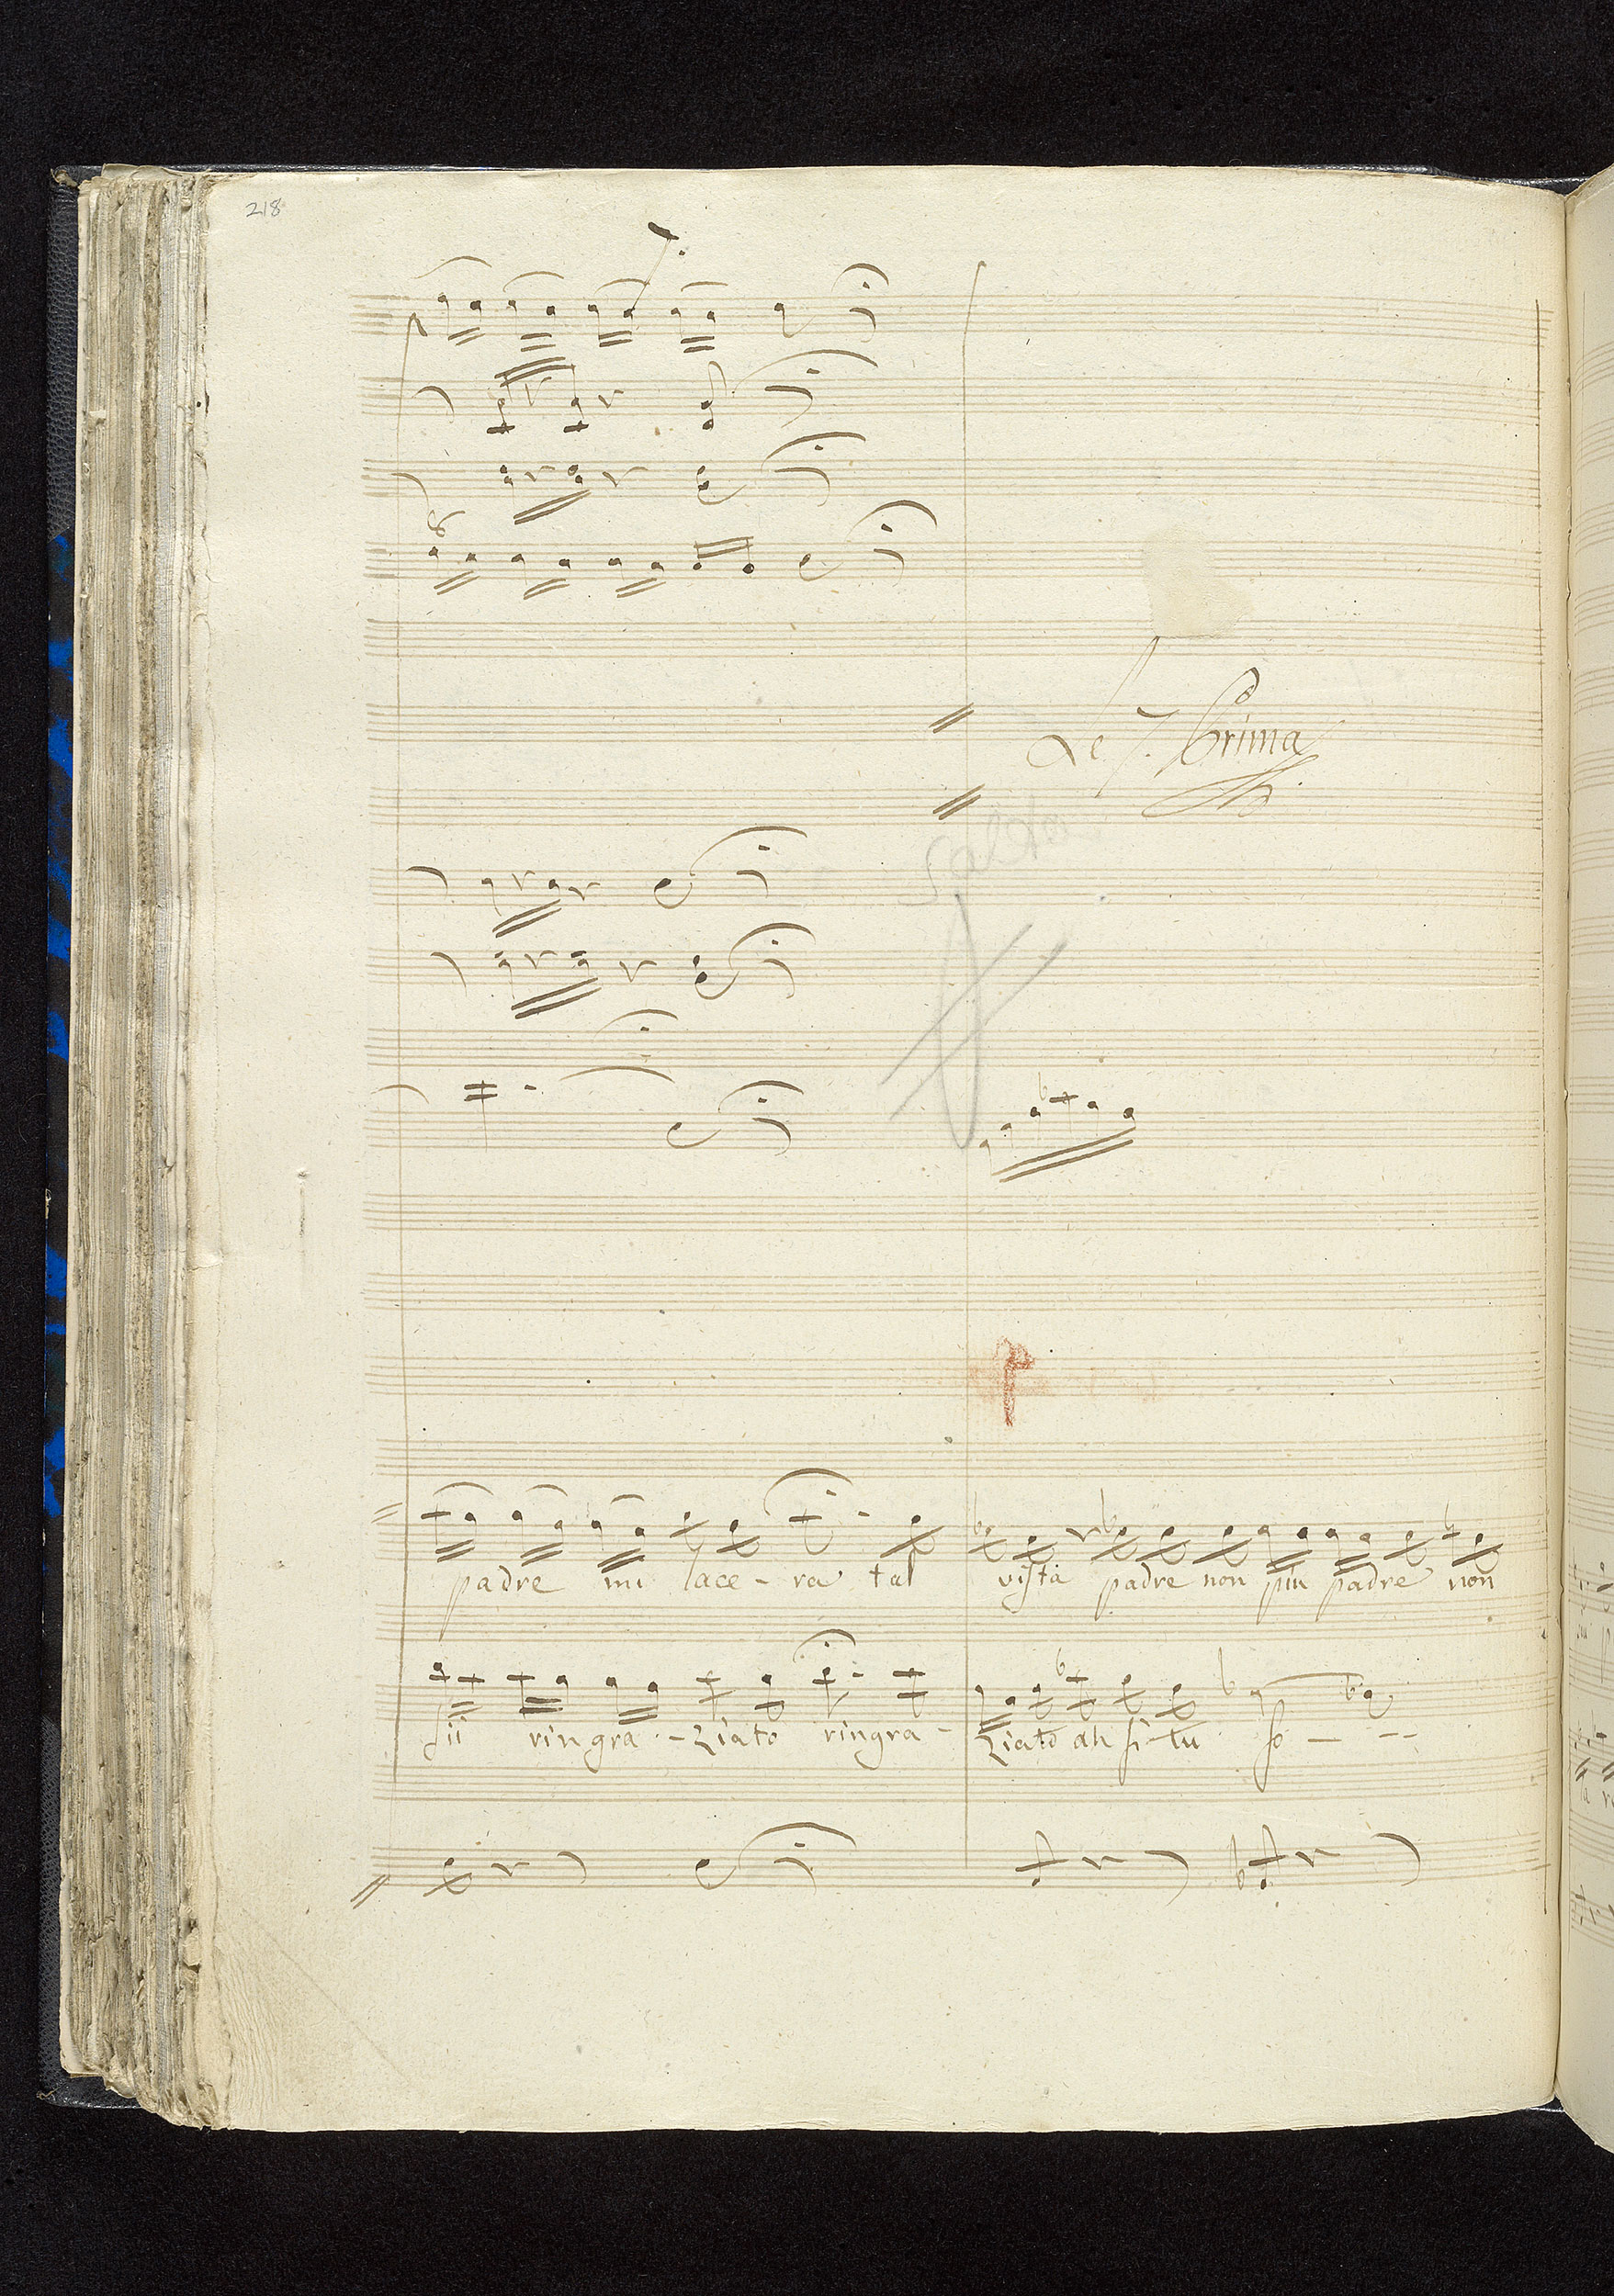 218
Prima
salto
padre mi lace - ra tal vista padre non piu padre non
sii ringra - ziato ringra - ziato ah si tu so - --